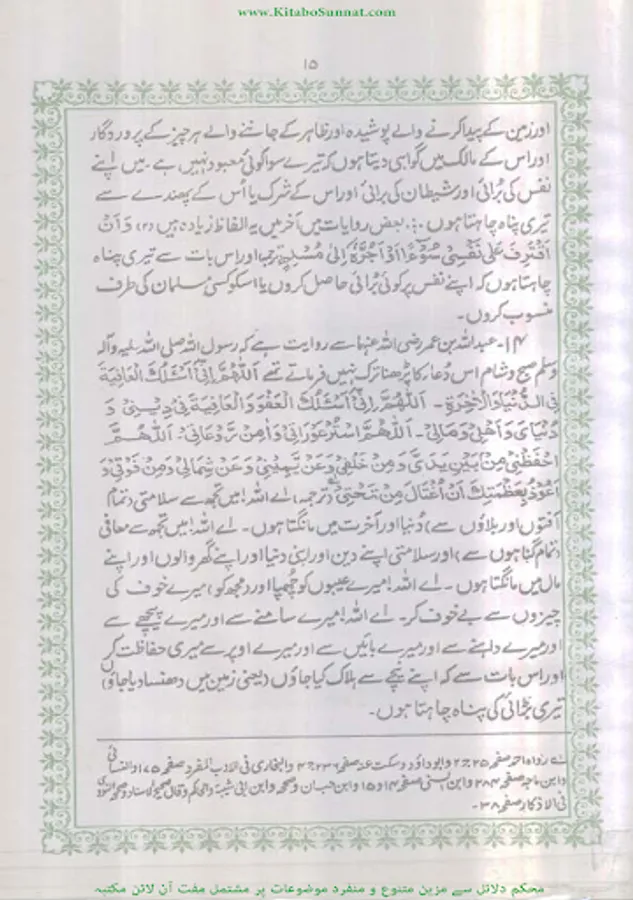 www.KitaboSunnat.com
۱۵
اور زمین کے پیدا کرنے والے پوشیدہ اور ظاہر کے جاننے والے ہر چیز کے پروردگار
اور اس کے مالک میں گواہی دیتا ہوں کہ تیرے سوا کوئی معبود نہیں ہے۔ میں اپنے
نفس کی بُرائی اور شیطان کی برائی اور اس کے شرک یا اُس کے پھندے سے
تیری پناہ چاہتا ہوں۔ بعض روایات میں آخر میں یہ الفاظ زیادہ ہیں (۲) وَ اَنْ
اَقْتَرِفَ عَلٰی نَفْسِیْ سُوْٓءًا اَوْ اَجُرَّہٗ اِلٰی مُسْلِمٍ ترجمہ اور اس بات سے تیری پناہ
چاہتا ہوں کہ اپنے نفس پر کوئی بُرائی حاصل کروں یا اسکو کسی مسلمان کی طرف
منسوب کروں۔
۱۴۔ عبداللہ بن عمر رضی اللہ عنہما سے روایت ہے کہ رسول اللہ صلی اللہ علیہ وآلہ
وسلم صبح و شام اس دُعا کا پڑھنا ترک نہیں فرماتے تھے اَللّٰھُمَّ اِنِّیْ اَسْئَلُكَ الْعَافِیَةَ
فِی الدُّنْیَا وَالْاٰخِرَةِ۔ اَللّٰھُمَّ اِنِّیْ اَسْئَلُكَ الْعَفْوَ وَالْعَافِیَةَ فِیْ دِیْنِیْ وَ
دُنْیَایَ وَ اَھْلِیْ وَمَالِیْ۔ اَللّٰھُمَّ اسْتُرْ عَوْرَاتِیْ وَاٰمِنْ رَّوْعَاتِیْ۔ اَللّٰھُمَّ
احْفَظْنِیْ مِنْ بَیْنِ یَدَیَّ وَ مِنْ خَلْفِیْ وَعَنْ یَّمِیْنِیْ وَعَنْ شِمَالِیْ وَمِنْ فَوْقِیْ وَ
اَعُوْذُ بِعَظَمَتِكَ اَنْ اُغْتَالَ مِنْ تَحْتِیْ (ترجمہ) اے اللہ! میں تجھ سے سلامتی (تمام
آفتوں اور بلاؤں سے) دُنیا اور آخرت میں مانگتا ہوں۔ اے اللہ! میں تجھ سے معافی
(تمام گناہوں سے) اور سلامتی اپنے دین اور اپنی دنیا اور اپنے گھر والوں اور اپنے
مال میں مانگتا ہوں۔ اے اللہ! میرے عیبوں کو چُھپا اور (مجھ کو) میرے خوف کی
چیزوں سے بے خوف کر۔ اے اللہ! میرے سامنے سے اور میرے پیچھے سے
اور میرے داہنے سے اور میرے بائیں سے اور میرے اوپر سے میری حفاظت کر
اور اس بات سے کہ اپنے نیچے سے ہلاک کیا جاؤں (یعنی زمین میں دھنسا دیا جاؤں)
تیری بڑائی کی پناہ چاہتا ہوں۔
رواہ احمد صفحہ ۲۵ ج۲ وابوداؤد وسکت عنہ صفحہ ۲۳۶ ج۴ والبخاری فی الادب المفرد صفحہ ۱۷۵ والنسائی
وابن ماجہ صفحہ ۲۸۴ وابن السنی صفحہ ۱۴ و۱۵ وابن حبان وصححہ وابن ابی شیبۃ والحاکم وقال صحیح الاسناد وصححہ النووی
فی الاذکار صفحہ ۳۸۔
محکم دلائل سے مزین متنوع و منفرد موضوعات پر مشتمل مفت آن لائن مکتبہ